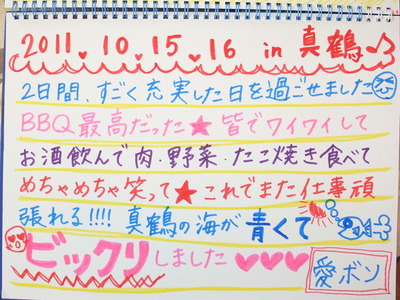 2011.10.15.16 in 真鶴
2日間、すごく充実した日を過ごせました
BBQ最高だった★皆でワイワイして
お酒飲んで肉・野菜・たこ焼き食べて
めちゃめちゃ笑って★これでまた仕事頑
張れる!!!! 真鶴の海が青くて
ビックリしました♥♥♥
愛ボン